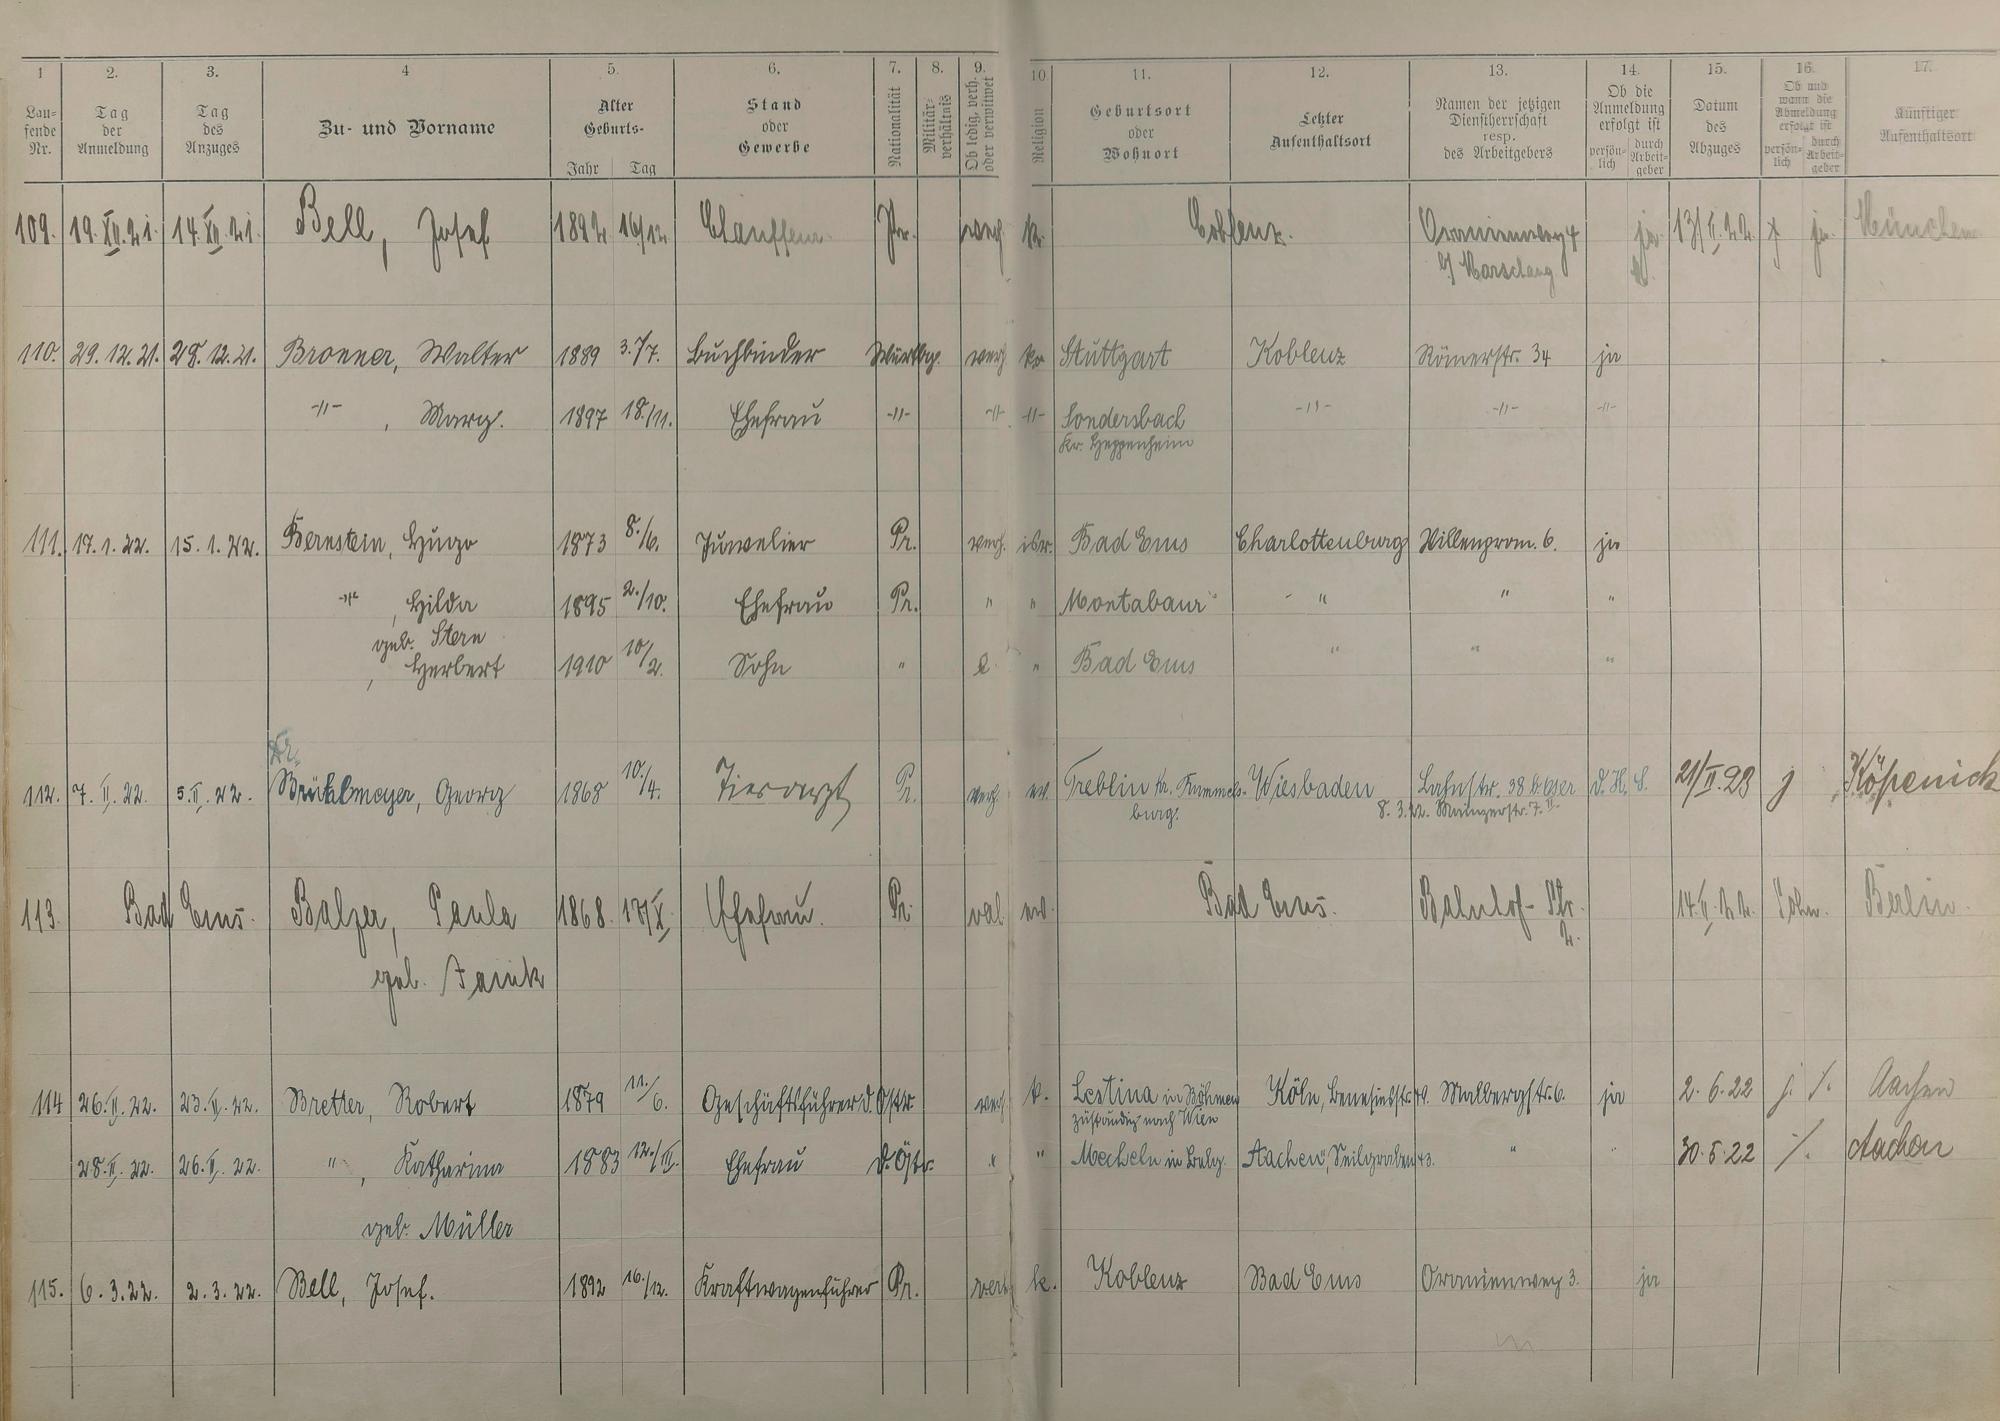 1 2. 3. 4 5. 6. 7. 8. 9. 10 11. 12. 13. 14. 15. 16. 17.
Lau-
fende
Nr.
Tag
der
Anmeldung
Tag
des
Anzuges
Zu- und Vorname
Alter
Geburts-
Jahr Tag
Stand
oder
Gewerbe
Nationalität
Militär-
verhältnis
Ob ledig, verh.
oder verwitwet
Religion
Geburtsort
oder
Wohnort
Letzter
Aufenthaltsort
Namen der jetzigen
Dienstherrschaft
resp.
des Arbeitgebers
Ob die
Anmeldung
erfolgt ist
persön-
lich
durch
Arbeit-
geber
Datum
des
Abzuges
Ob und
wann die
Abmeldung
erfolgt ist
persön-
lich
durch
Arbeit-
geber
Künftiger
Aufenthaltsort
109. 19. XII. 21. 14. XII. 21. Bell, Josef 1892 16/12 Chauffeur Pr. verh. k. Coblenz. Oranienweg 4 ja 13/II. 22 ja München
b/ Marschang
110. 29. 12. 21. 28. 12. 21. Bronner, Walter 1889 3./7. Buchbinder Württbg. verh. Stuttgart Koblenz Römerstr. 34 ja
-"- , Marg. 1897 18./11. Ehefrau -"- -"- -"- Sondersbach -"- -"- -"-
Kr. Heppenheim
111. 17. 1. 22. 15. 1. 22. Bernstein, Hugo 1873 8./6. Juwelier Pr. verh. isr. Bad Ems Charlottenburg Villenprom. 6. ja
-"- , Hilda 1895 2./10. Ehefrau Pr. " " Montabaur " " "
geb. Stern
, Herbert 1910 10/2. Sohn " l. " Bad Ems " " "
Dr.
112. 7. II. 22. 5. II. 22. Brühlmeyer, Georg 1868 10./4. Tierarzt Pr. verh. ev. Treblin Kr. Rummels- Wiesbaden Lahnstr. 38 21/II. 23 j Köpenick
burg. 8. 3. 22. Mainzerstr. 7.
113. Bad Ems. Balzer, Paula 1868. 17/X. Ehefrau. Pr. ev. Bad Ems. Bahnhof-Str. 14. II. 22. Sohn. Berlin.
2.
geb.
114 26. II. 22. 23. II. 22. Bretter, Robert 1879 11./6. Geschäftsführer d. Östr. verh. k. Lestina in Böhmen Köln, Malbergstr. 6. ja 2. 6. 22 j. /. Aachen
zuständig nach Wien
28. II. 22. 26. II. 22. " , Katharina 1883 12./III. Ehefrau d. Östr. " " Mecheln in Belg. Aachen, Seilgraben 43. " 30. 5. 22 /. Aachen
geb. Müller
115. 6. 3. 22. 2. 3. 22. Bell, Josef. 1892 16./12. Kraftwagenführer Pr. verh. k. Koblenz Bad Ems Oranienweg 3. ja